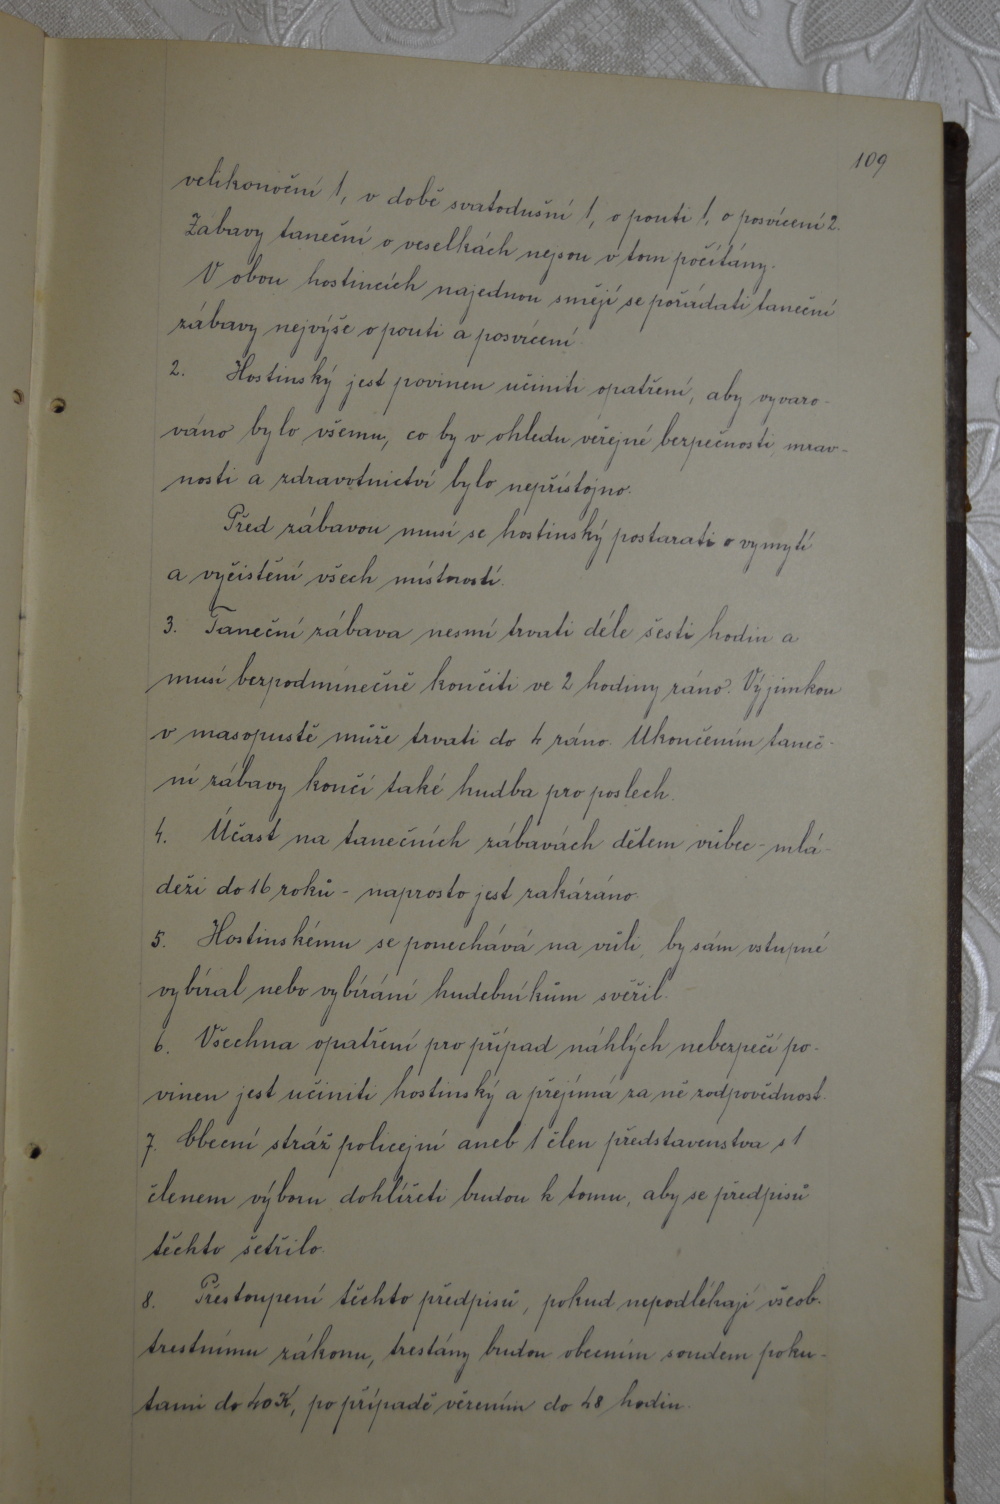 109
velikonoční 1, v době svatodušní 1, o pouti 1, o posvícení 2.
Zábavy taneční o veselkách nejsou v tom počítány.
V obou hostincích najednou smějí se pořádati taneční
zábavy nejvýše o pouti a posvícení.
2. Hostinský jest povinen učiniti opatření, aby vyvaro-
váno bylo všemu, co by v ohledu veřejné bezpečnosti, mrav-
nosti a zdravotnictví bylo nepřístojno.
Před zábavou musí se hostinský postarati o vymytí
a vyčistění všech místností.
3. Taneční zábava nesmí trvati déle šesti hodin a
musí bezpodmínečně končiti ve 2 hodiny ráno. Výjimkou
v masopustě může trvati do 4 ráno. Ukončením taneč-
ní zábavy končí také hudba pro poslech.
4. Účast na tanečních zábavách dětem vůbec - mlá-
deži do 16 roků - naprosto jest zakázáno.
5. Hostinskému se ponechává na vůli, by sám vstupné
vybíral nebo vybírání hudebníkům svěřil.
6. Všechna opatření pro případ náhlých nebezpečí po-
vinen jest učiniti hostinský a přejímá za ně zodpovědnost.
7. Obecní stráž policejní aneb 1 člen představenstva s 1
členem výboru dohlížeti budou k tomu, aby se předpisů
těchto šetřilo.
8. Přestoupení těchto předpisů, pokud nepodléhají všeob.
trestnímu zákonu, trestány budou obecním soudem poku-
tami do 40 K, po případě vězením do 48 hodin.